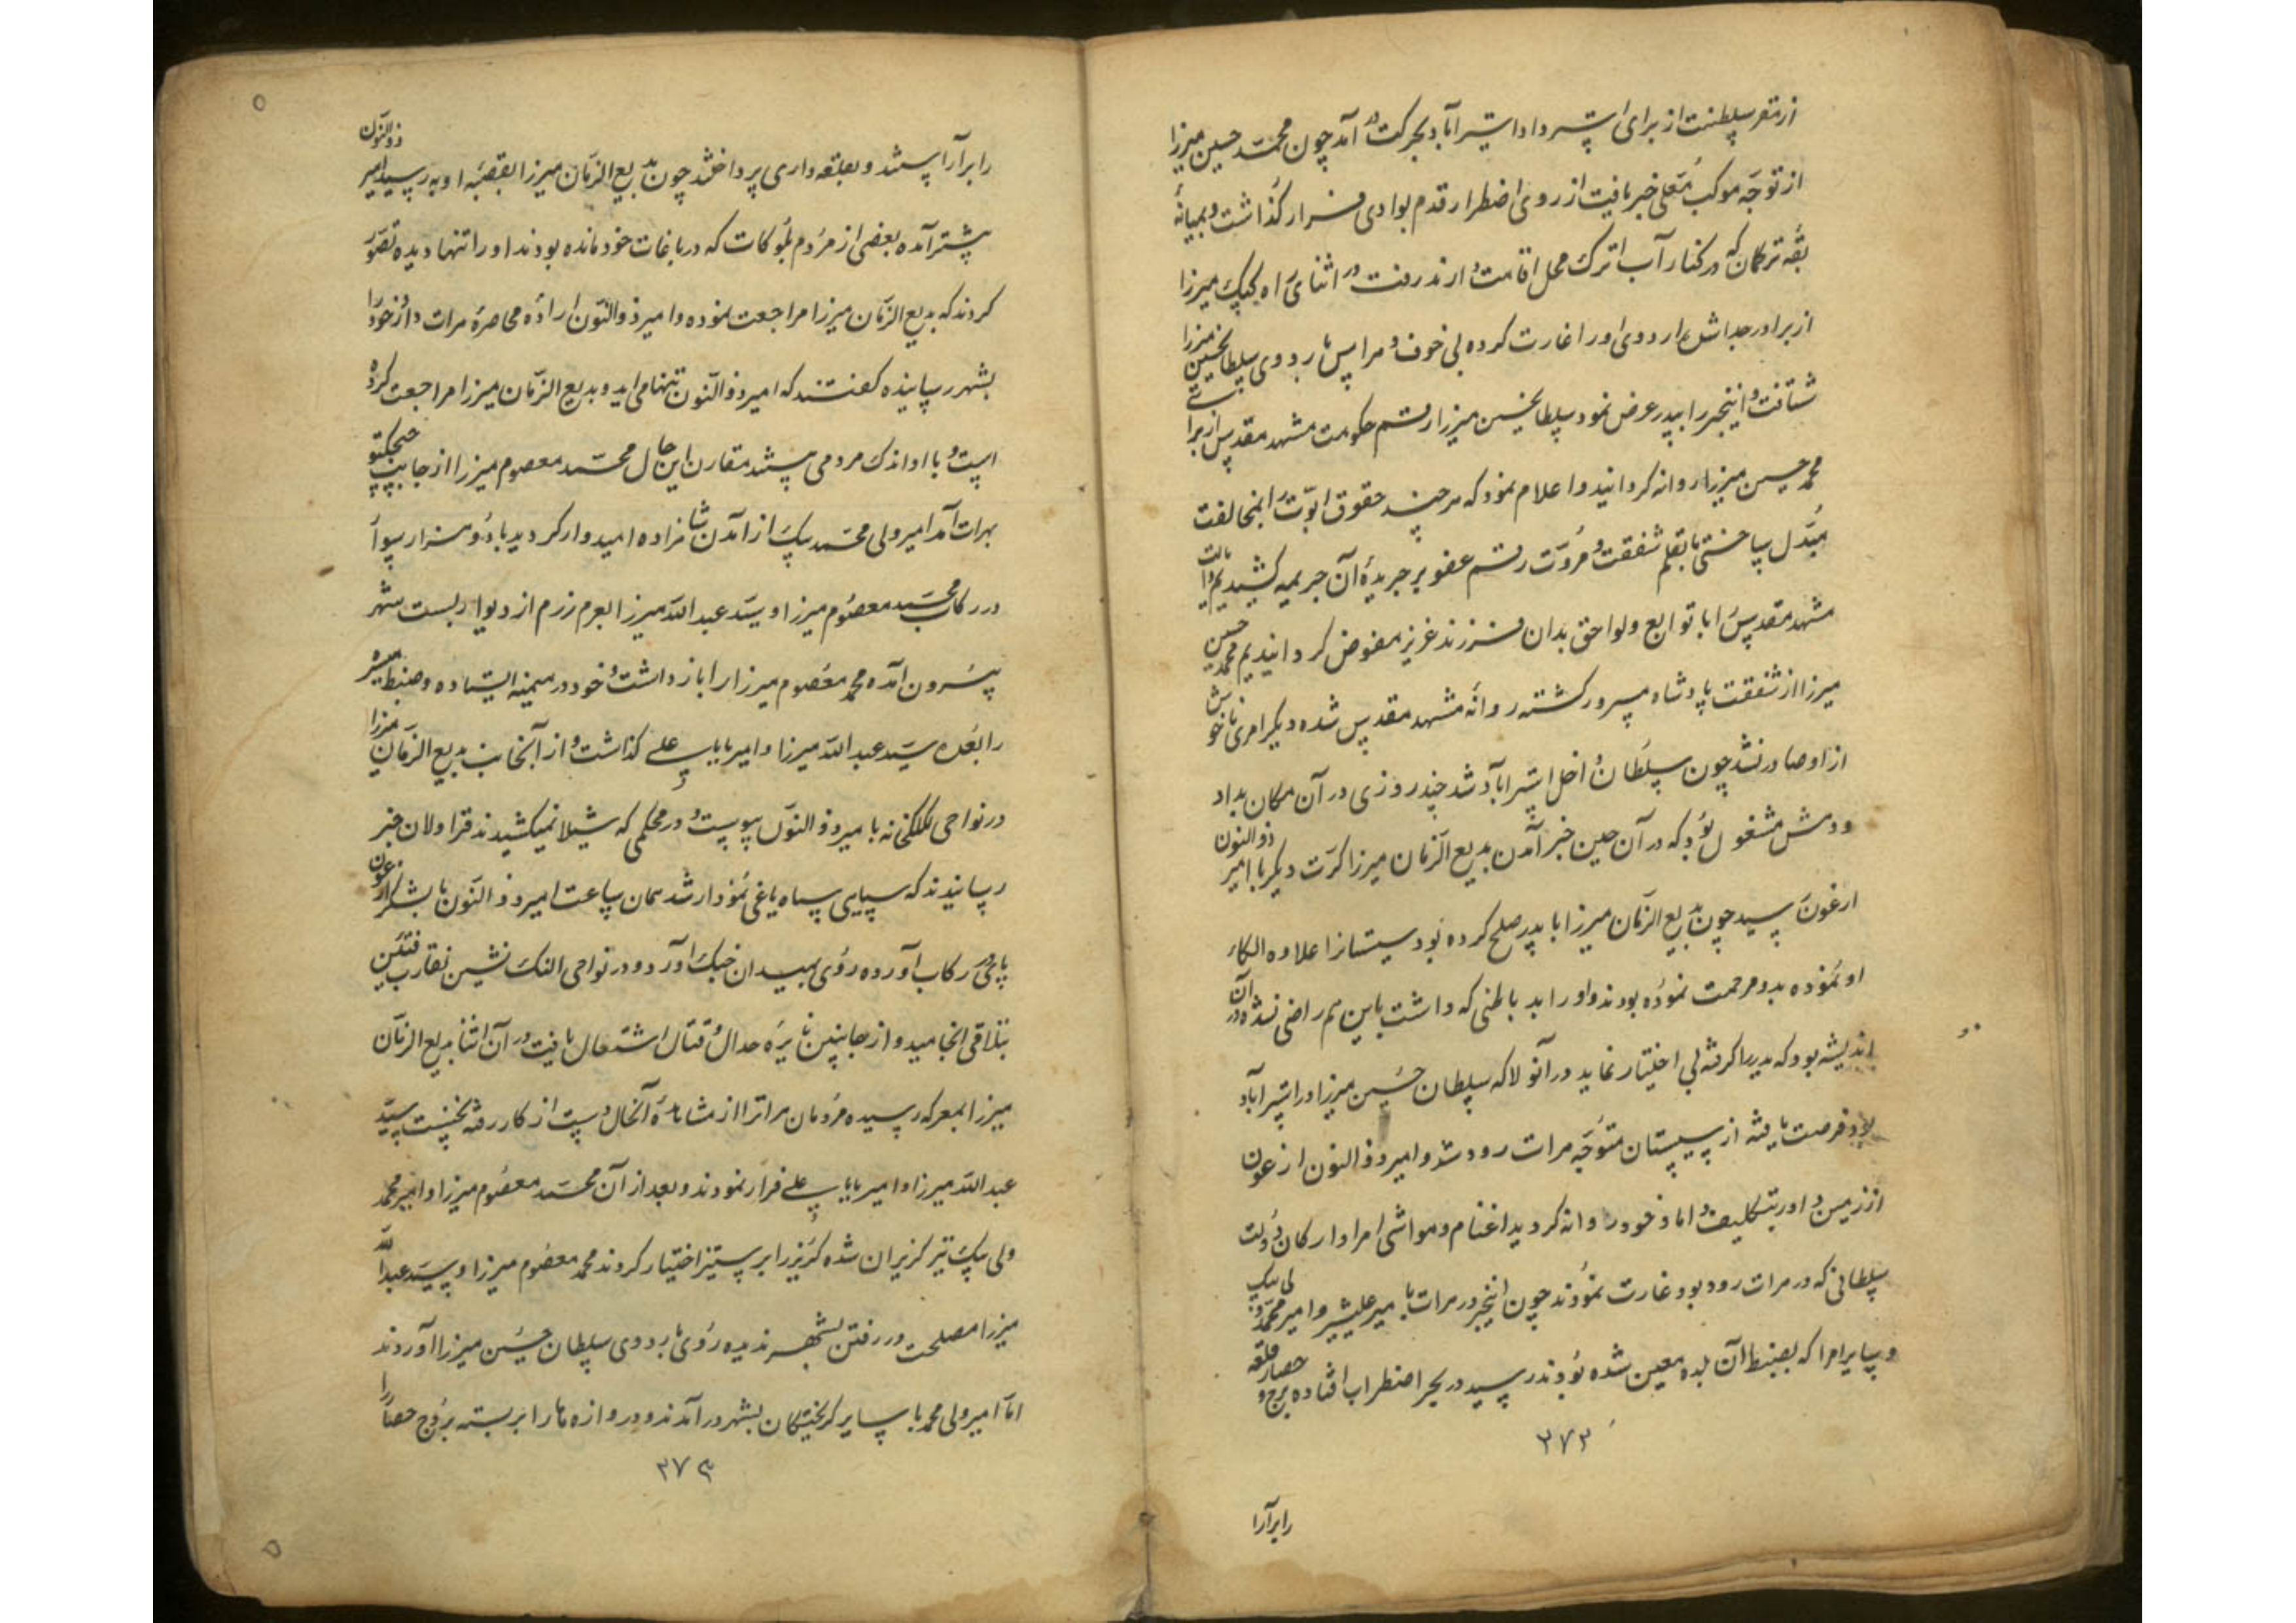 از مقر سلطنت از برای استرداد استراباد بحرکت در آمد چون محمد حسین میرزا
از توجه موکب معلی خبر یافت از روی اضطرار قدم بوادی فرار گذاشت و بمیانهٔ
بقه ترکمان که در کنار آب اترک محل اقامت دارند رفت در اثنای راه کپک میرزا
از برادر جدا شده اردوی او را غارت کرده بی خوف و هراس باردوی سلطانحسین میرزا
شتافت و اینخبر را بپدر عرض نمود سلطانحسین میرزا رقم حکومت مشهد مقدس از برای
محمد حسین میرزا روانه گردانید و اعلام نمود که هرچند حقوق ابوت را بمخالفت
مبدل ساختی ما بقلم شفقت و مروت رقم عفو بر جریدهٔ آن جریمه کشیدیم و ایالت
مشهد مقدس را با توابع و لواحق بدان فرزند عزیز مفوض گردانیدیم محمد حسین
میرزا از شفقت پادشاه مسرور گشته روانه مشهد مقدس شده دیگر امری ناخوش
از او صادر نشد چون سلطان داخل استراباد شد چند روزی در آن مکان بداد
و دهش مشغول بود که در آن حین خبر آمدن بدیع الزمان میرزا کرت دیگر با امیر ذوالنون
ارغون رسید چون بدیع الزمان میرزا با پدر صلح کرده بود سیستانرا علاوه الکاء
او نموده بدو مرحمت نموده بودند و او را بد باطنی که داشت باین هم راضی نشده در آن
اندیشه بود که پدر را گرفته بی اختیار نماید در آنولا که سلطان حسین میرزا در استراباد
بود فرصت یافته از سیستان متوجه هرات رود شد و امیر ذوالنون ارغون
از زمین داور بتکلیف داماد خود روانه گردید اغنام و مواشی امرا و ارکان دولت
سلطانی که در هرات رود بود غارت نمودند چون اینخبر در هرات با میر علیشیر و امیر محمد ولی بیک
و سایر امرا که بضبط آن بلده معین شده بودند رسید در بحر اضطراب افتاده برج و حصار قلعه
۲۷۲
رابرآرا
را برآراستند و بقلعه داری پرداختند چون بدیع الزمان میرزا بقصبه اوبه رسید امیر ذوالنون
پیشتر آمده بعضی از مردم بلوکات که در باغات خود مانده بودند او را تنها دیده تصور
کردند که بدیع الزمان میرزا مراجعت نموده و امیر ذوالنون اراده محاصره هرات دارد خود را
بشهر رسانیده گفتند که امیر ذوالنون تنها می آید و بدیع الزمان میرزا مراجعت کرده
است و با او اندک مردمی هستند مقارن این حال محمد معصوم میرزا از جانب چیچکتو
بهرات آمد امیر ولی محمد بیک از آمدن شاهزاده امیدوار گردید با دو هزار سوار
در رکاب محمد معصوم میرزا و سید عبد الله میرزا بعزم رزم از دیوار بست شهر
بیرون آمده محمد معصوم میرزا را باز داشت و خود در میمنه ایستاده و ضبط میسره
را بعهده سید عبد الله میرزا و امیر بابا علی گذاشت و از آنجانب بدیع الزمان میرزا
در نواحی کلکخانه با میر ذوالنون پیوست و در محلی که شیلان میکشیدند قراولان خبر
رسانیدند که سیاهی سپاه یاغی نمودار شد همان ساعت امیر ذوالنون با لشکر ارغون
پای در رکاب آورده روی بمیدان جنگ آورد و در نواحی النک نشین تقارب فئتین
بتلاقی انجامید و از جانبین نایره جدال و قتال اشتعال یافت در آن اثنا بدیع الزمان
میرزا بمعرکه رسیده مردمان هراترا از مشاهدهٔ آنحال دست از کار رفته نخست سید
عبد الله میرزا و امیر بابا علی فرار نمودند و بعد از آن محمد معصوم میرزا و امیر محمد
ولی بیک نیز گریزان شده گریز را بر ستیز اختیار کردند محمد معصوم میرزا و سید عبد الله
میرزا مصلحت در رفتن بشهر ندیده روی باردوی سلطان حسین میرزا آوردند
اما امیر ولی محمد با سایر گریختگان بشهر در آمدند و دروازه ها را بر بسته بروج حصار را
۲۷۳